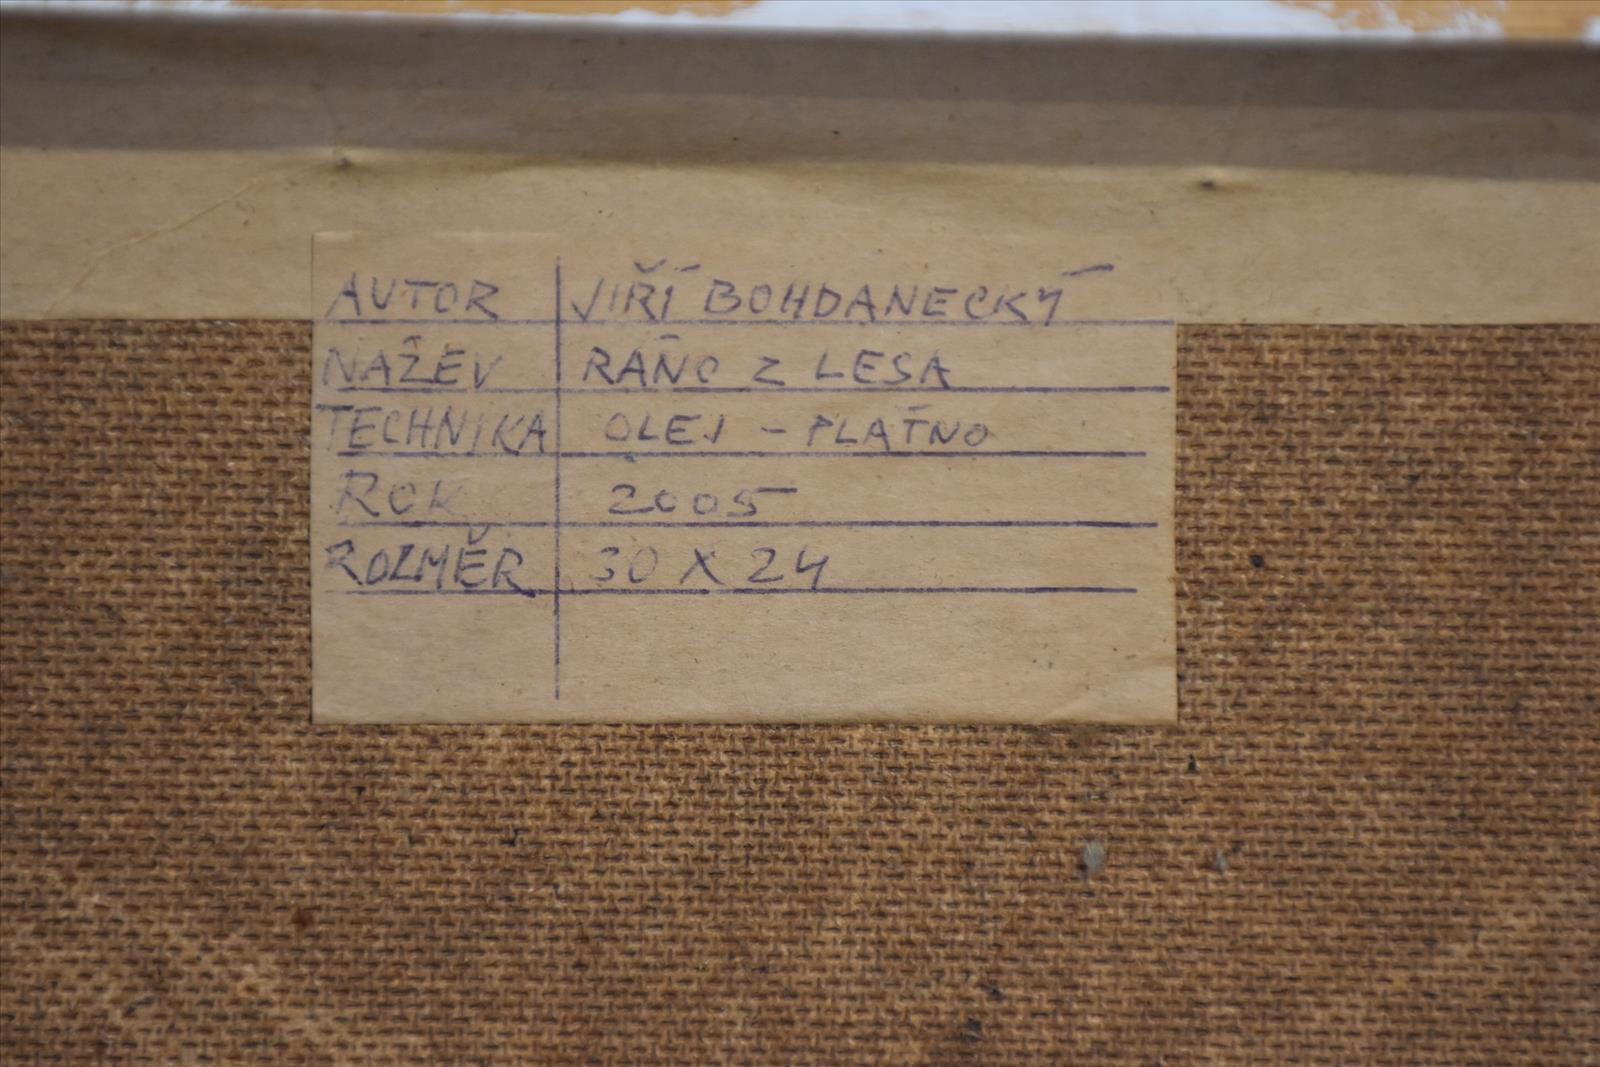 AUTOR JIŘÍ BOHDANECKÝ
NÁZEV RÁNO Z LESA
TECHNIKA OLEJ - PLÁTNO
ROK 2005
ROZMĚR 30 X 24